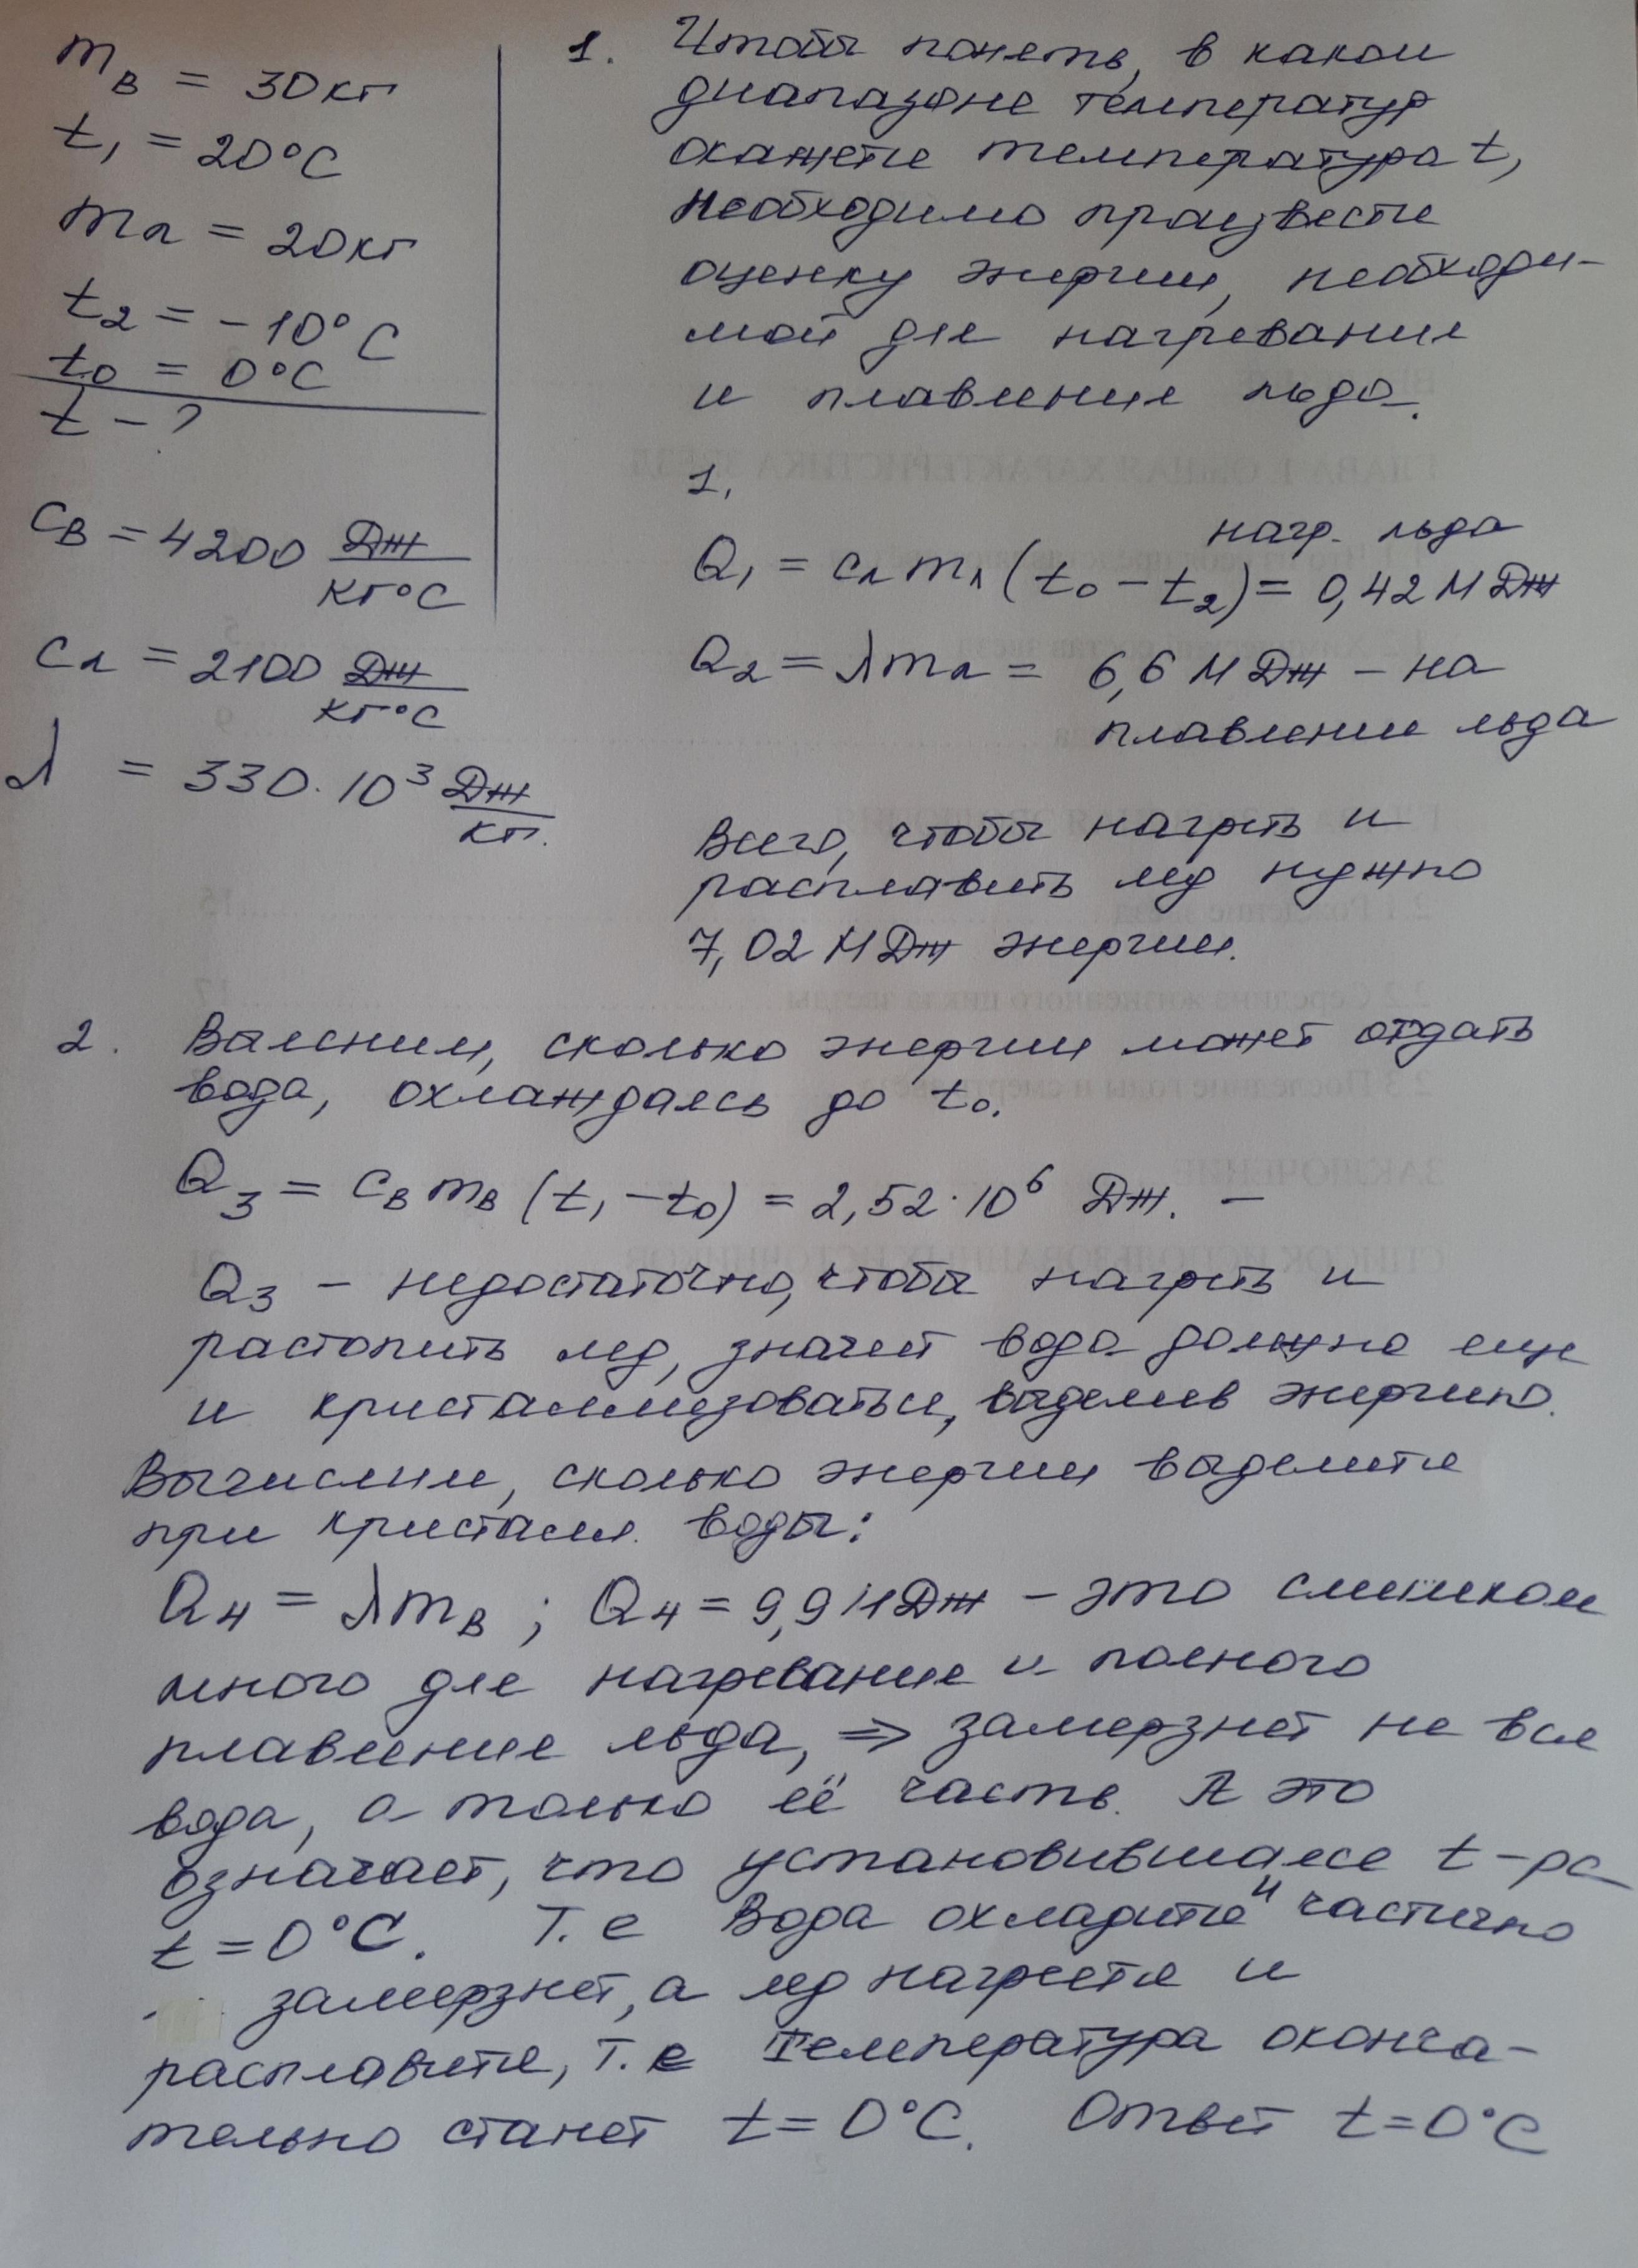 mв = 30кг
t₁ = 20°C
mл = 20кг
t₂ = -10°C
t₀ = 0°C
t - ?
Cв = 4200 Дж/кг°C
Cл = 2100 Дж/кг°C
λ = 330·10³ Дж/кг.
1. Чтобы понять, в каком
диапазоне температур
окажется температура t,
необходимо произвести
оценку энергии, необходи-
мой для нагревания
и плавления льда.
1.
нагр. льда
Q₁ = cл mл (t₀ - t₂) = 0,42 МДж
Q₂ = λmл = 6,6 МДж - на
плавление льда
Всего, чтобы нагреть и
расплавить лед нужно
7,02 МДж энергии.
2. Выясним, сколько энергии может отдать
вода, охлаждаясь до t₀.
Q₃ = cв mв (t₁ - t₀) = 2,52·10⁶ Дж. -
Q₃ - недостаточно, чтобы нагреть и
растопить лед, значит вода должна еще
и кристаллизоваться, выделив энергию.
Вычислим, сколько энергии выделится
при кристалл. воды:
Q₄ = λmв ; Q₄ = 9,9 МДж - это слишком
много для нагревания и полного
плавления льда, => замерзнет не вся
вода, а только её часть. А это
означает, что установившаяся t-ра
t = 0°C. Т.е вода охладится и частично
замерзнет, а лед нагреется и
расплавится, т.е температура оконча-
тельно станет t = 0°C. Ответ t = 0°C